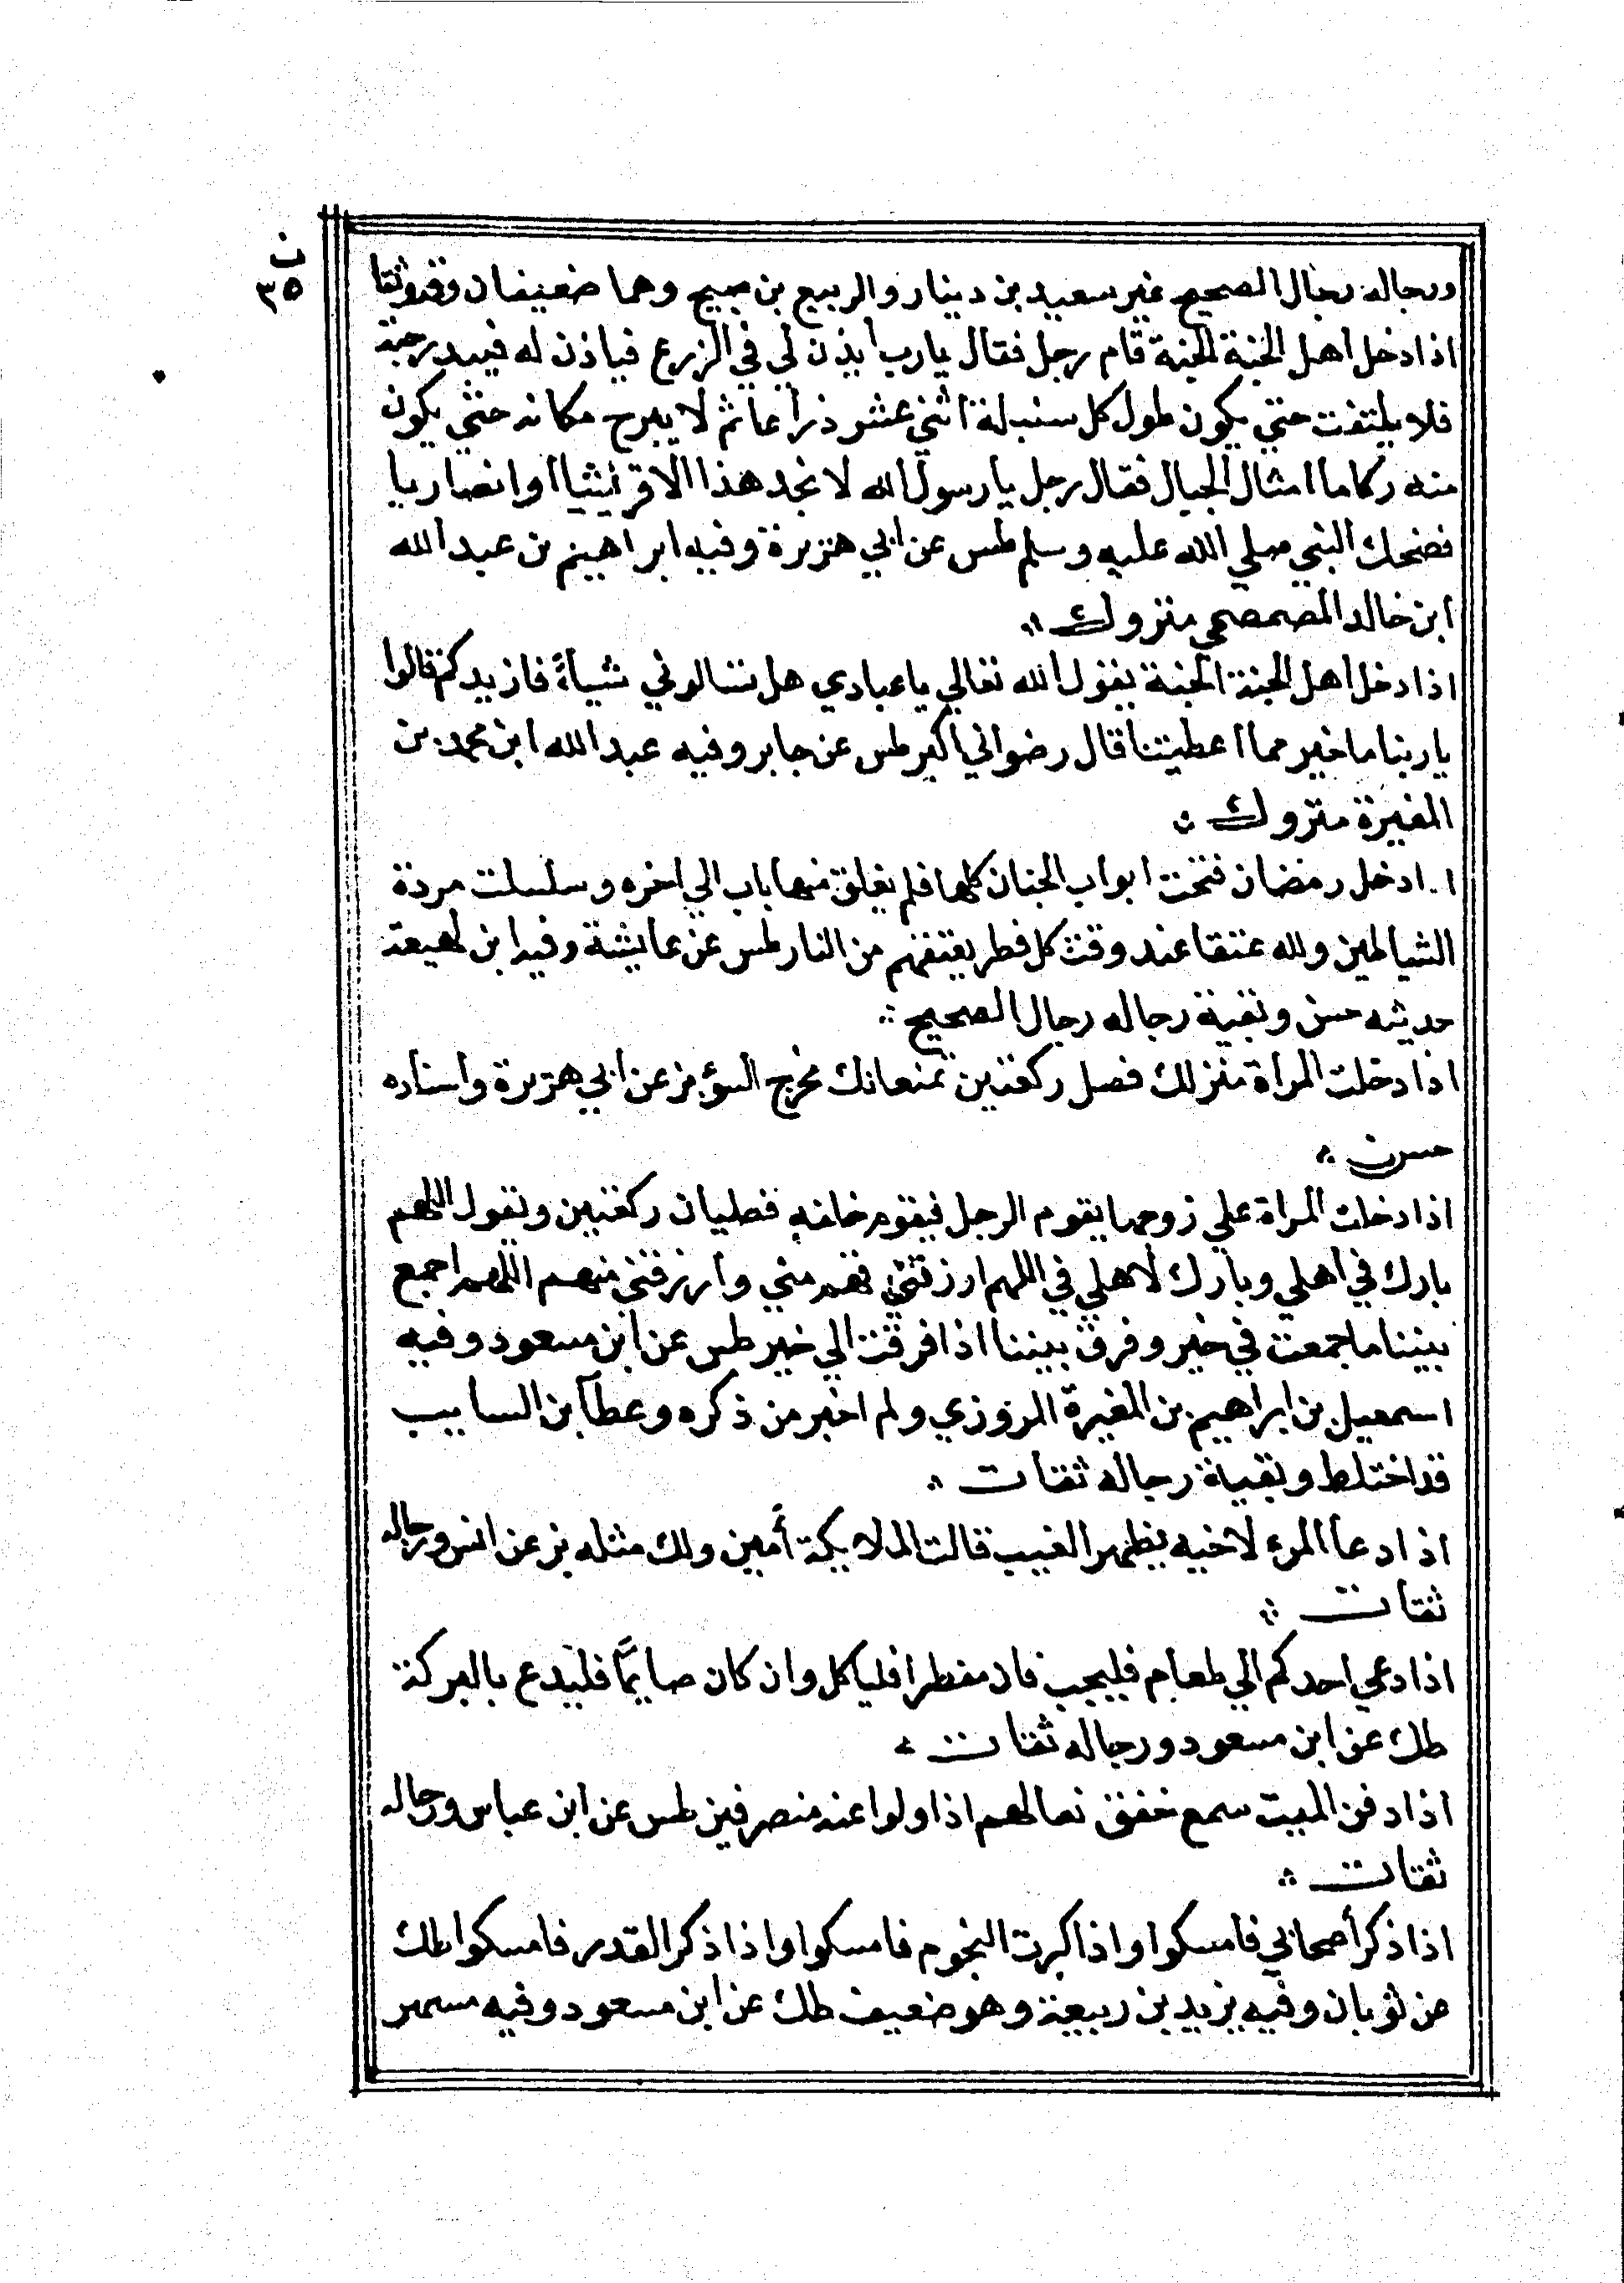 ن
٣٥
ورجاله رجال الصحيح غير سعيد بن دينار والربيع بن صبيح وهما ضعيفان وقد وثقا
اذا دخل اهل الجنة الجنة قام رجل فقال يارب ايذن لي في الزرع فياذن له فيبدر حبة
فلا يلتفت حتي يكون طول كل سنبلة اثني عشر ذراعا ثم لا يبرح مكانه حتي يكون
منه ركاما امثال الجبال فقال رجل يارسول الله لا نجد هذا الا قرشيا او انصاريا
فضحك النبي صلي الله عليه وسلم طس عن ابي هريرة وفيه ابراهيم بن عبد الله
ابن خالد المصمصي متروك
اذا دخل اهل الجنة الجنة يقول الله تعالي ياعبادي هل تسالوني شيأً فازيدكم قالوا
ياربنا ما خير مما اعطيتنا قال رضواني اكبر طس عن جابر وفيه عبد الله ابن محمد بن
المغيرة متروك
ا ادخل رمضان فتحت ابواب الجنان كلها فلم يغلق منها باب الي اخره وسلسلت مردة
الشياطين ولله عتقا عند وقت كل فطر يعتقهم من النار طس عن عايشة وفيه ابن لهيعة
حديثه حسن وبقية رجاله رجال الصحيح
اذا دخلت المراة منزلك فصل ركعتين تمنعانك مخرج السؤ بز عن ابي هريرة واسناده
حسن
اذا دخلت المراة علي زوجها يقوم الرجل فيقوم خلفه فصليان ركعتين وتقول اللهم
بارك في اهلي وبارك لاهلي في اللهم ارزقني فهم مني وارزقني منهم اللهم اجمع
بيننا ما جمعت في خير وفرق بيننا اذا فرقت الي خير طس عن ابن مسعود وفيه
اسمعيل بن ابراهيم بن المغيرة المروزي ولم اخبر من ذكره وعطآ بن السايب
قد اختلط وبقية رجاله ثقات
اذا دعا المرء لاخيه بظهر الغيب قالت الملايكة أمين ولك مثله بز عن انس ورجاله
ثقات
اذا دعي احدكم الي طعام فليجب فان مفطرا فلياكل وان كان صايمًا فليدع بالبركة
طك عن ابن مسعود ورجاله ثقات
اذا دفن الميت سمع خفق نعالهم اذا ولوا عنه منصرفين طس عن ابن عباس ورجاله
ثقات
اذا ذكر أصحابي فامسكوا واذا كرت النجوم فامسكوا واذا ذكر القدر فامسكوا طك
عن ثوبان وفيه يزيد بن ربيعة وهو ضعيف طك عن ابن مسعود وفيه مسهر